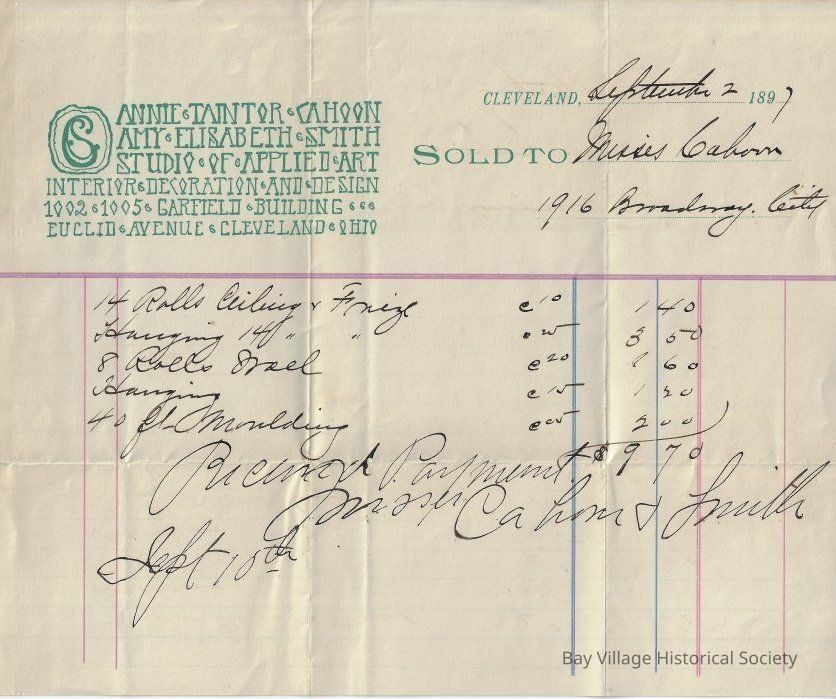 ANNIE TAINTOR CAHOON
AMY ELISABETH SMITH
STUDIO OF APPLIED ART
INTERIOR DECORATION AND DESIGN
1002 1005 GARFIELD BUILDING
EUCLID AVENUE CLEVELAND OHIO
CLEVELAND, September 2 1897
SOLD TO Misses Cahoon
1916 Broadway. City
14 Rolls Ceiling & Frieze @10 1 40
Hanging 14 " " @25 3 50
8 Rolls @20 1 60
Hanging @15 1 20
40 ft Moulding @05 2 00
$9 70
Received Payment
Misses Cahoon & Smith
Sept 10th
Bay Village Historical Society